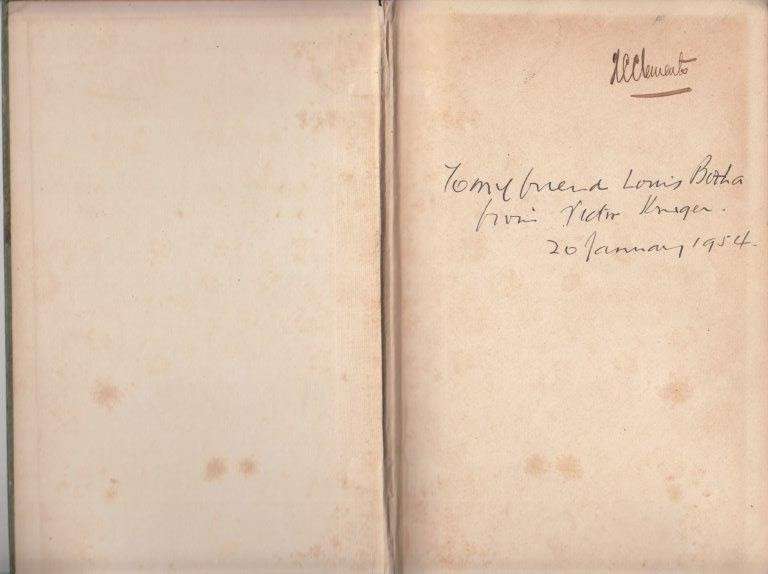 H C Clements
To my friend Louis Botha
from Victor Krueger.
20 January 1954.